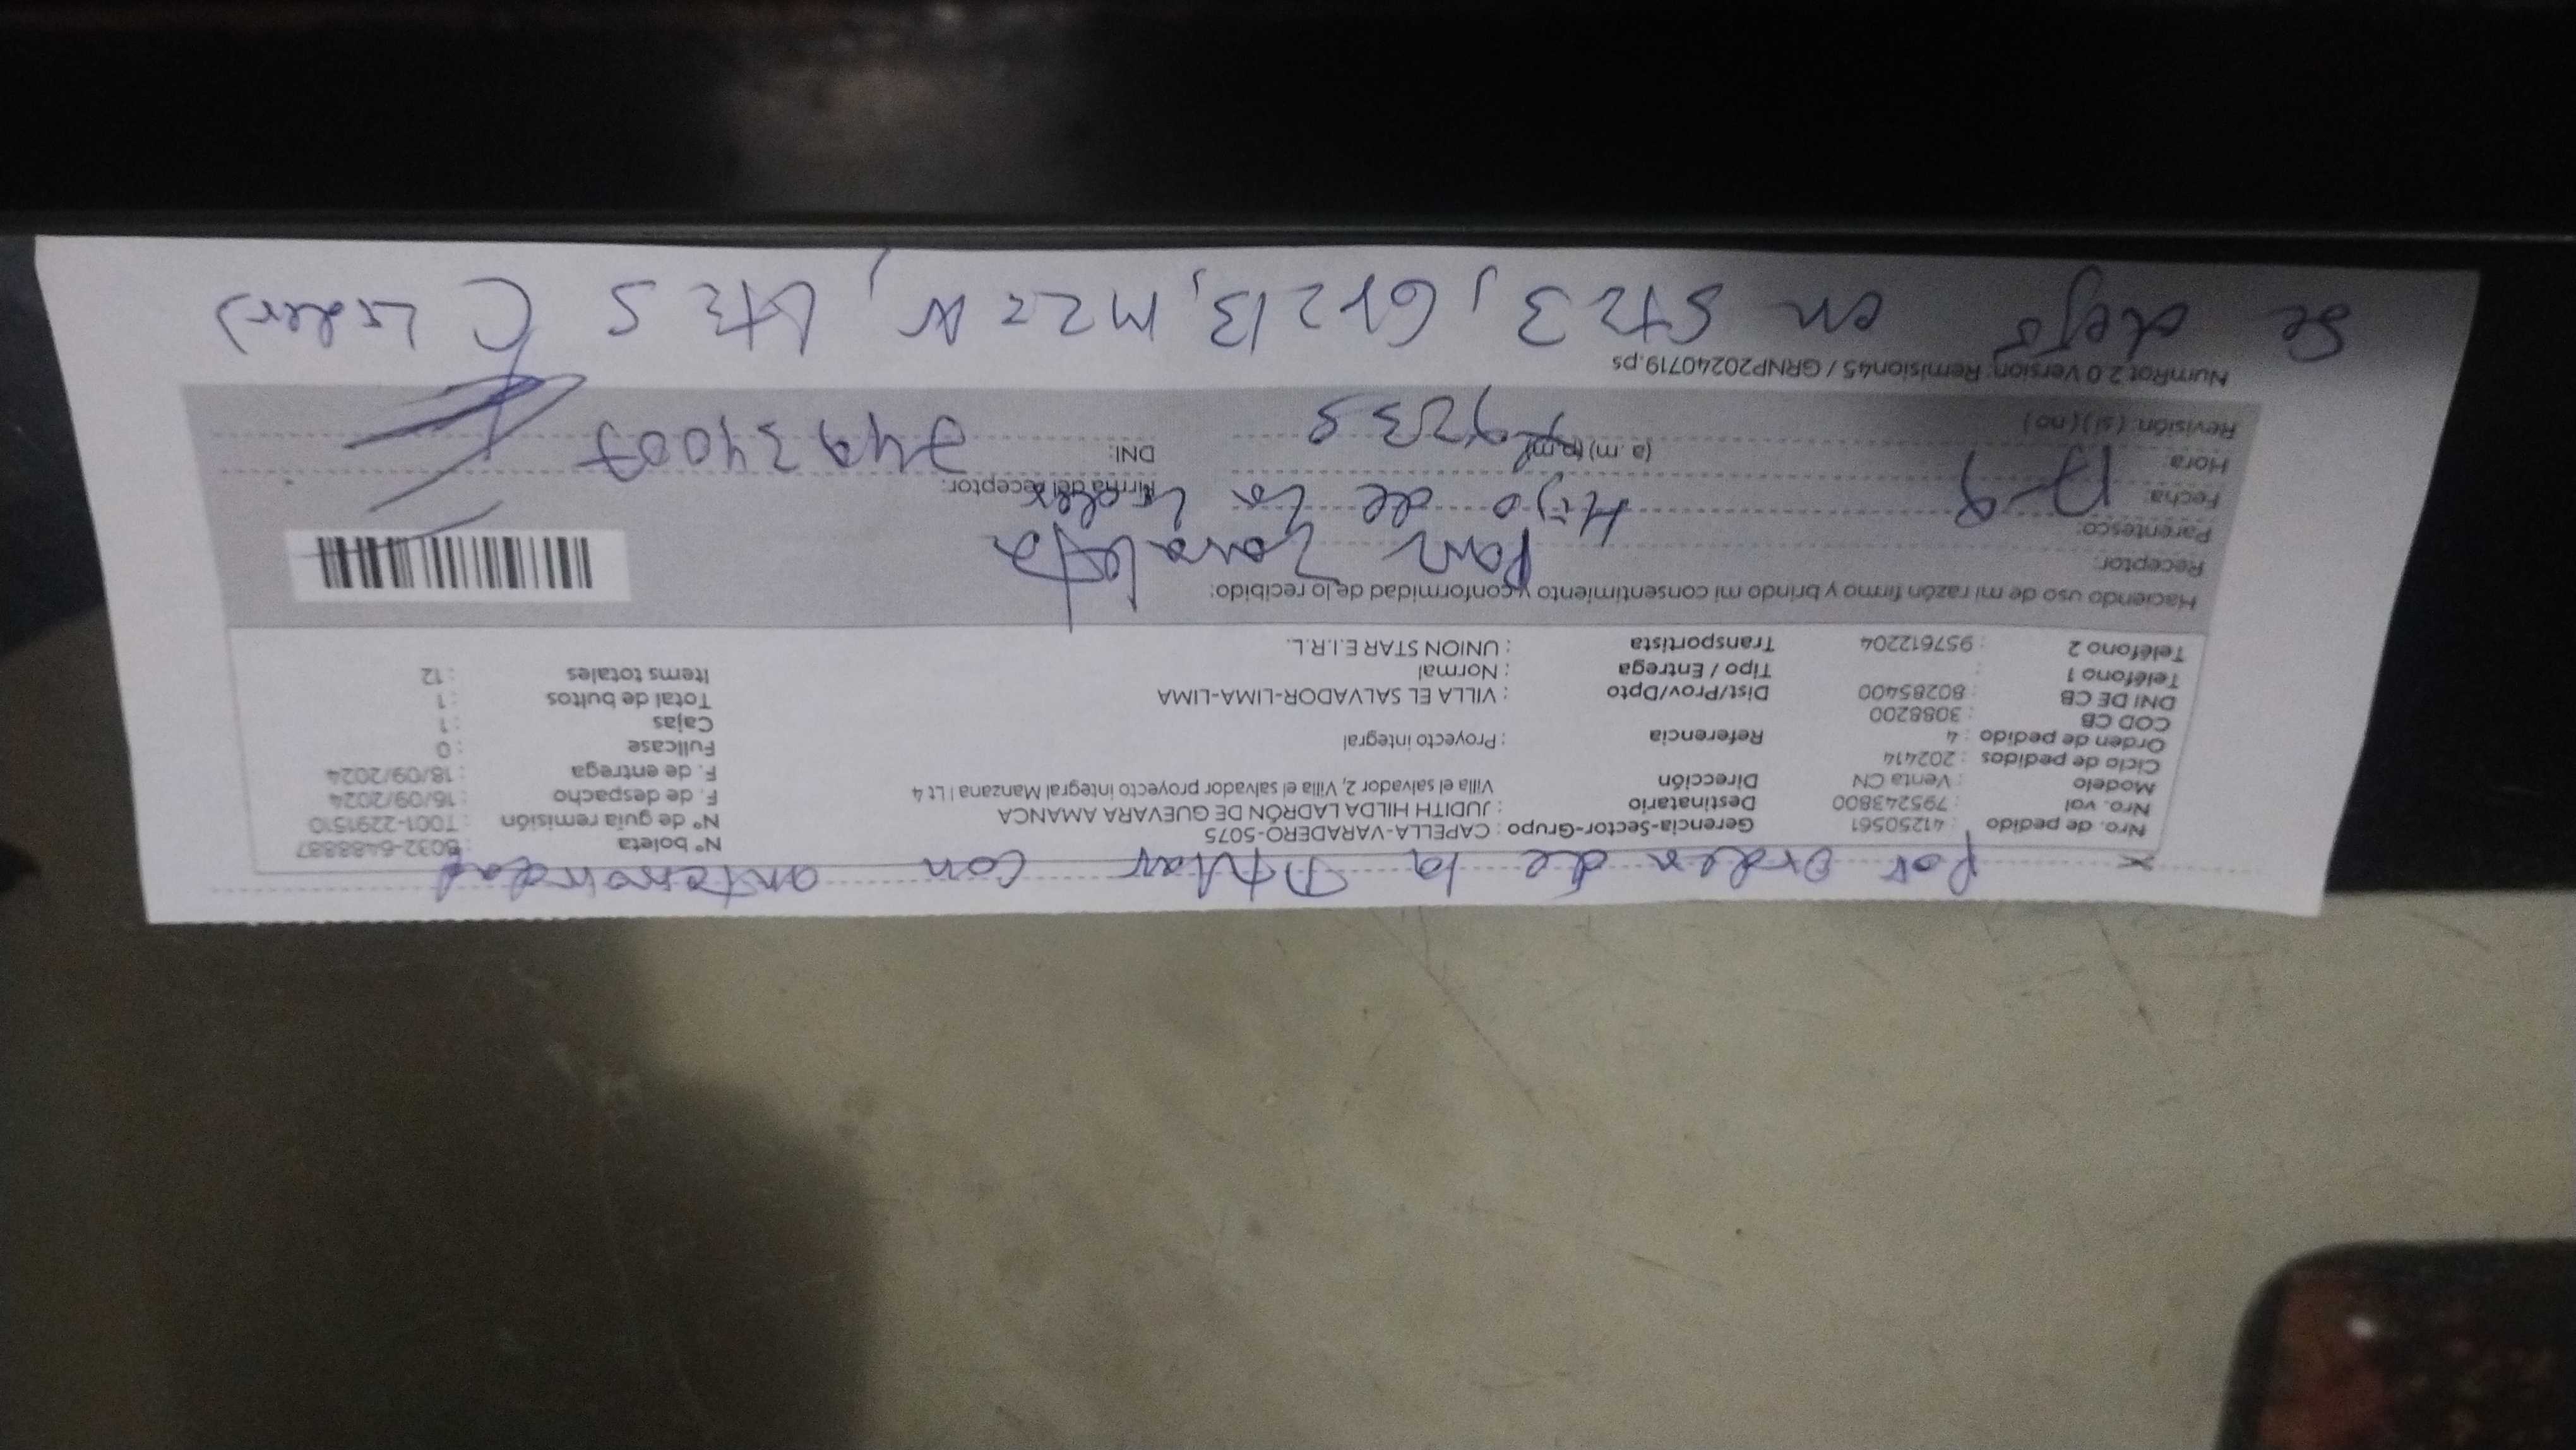 x por orden de la titular con anterioridad
Nro. de pedido : 41250561 Gerencia-Sector-Grupo : CAPELLA-VARADERO-5075 N° boleta : B032-6488887
Nro. vol : 795243800 Destinatario : JUDITH HILDA LADRÓN DE GUEVARA AMANCA N° de guía remisión : T001-2291510
Modelo : Venta CN Dirección Villa el salvador 2, Villa el salvador proyecto integral Manzana I Lt 4 F. de despacho : 16/09/2024
Ciclo de pedidos : 202414 F. de entrega : 18/09/2024
Orden de pedido : 4 Referencia : Proyecto integral Fullcase : 0
COD CB : 3088200 Cajas : 1
DNI DE CB : 80285400 Dist/Prov/Dpto : VILLA EL SALVADOR-LIMA-LIMA Total de bultos : 1
Teléfono 1 : Tipo / Entrega : Normal Items totales : 12
Teléfono 2 : 957612204 Transportista : UNION STAR E.I.R.L.
Haciendo uso de mi razón firmo y brindo mi consentimiento y conformidad de lo recibido:
Receptor:
Parentesco: Hijo de la Lider
Fecha: 17-9 Firma del receptor:
Hora: (a.m) (p.m) DNI: 74934007
Revisión: (si) (no)
NumRot 2.0 Version: Remision45 / GRNP20240719.ps
Se dejo en St=3, Gr=13, Mz=N, Lt=5 (Lider)